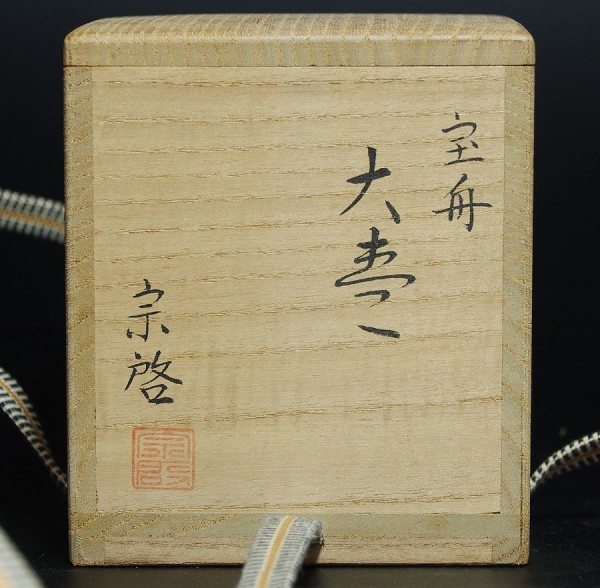 宝舟
大棗
宗啓